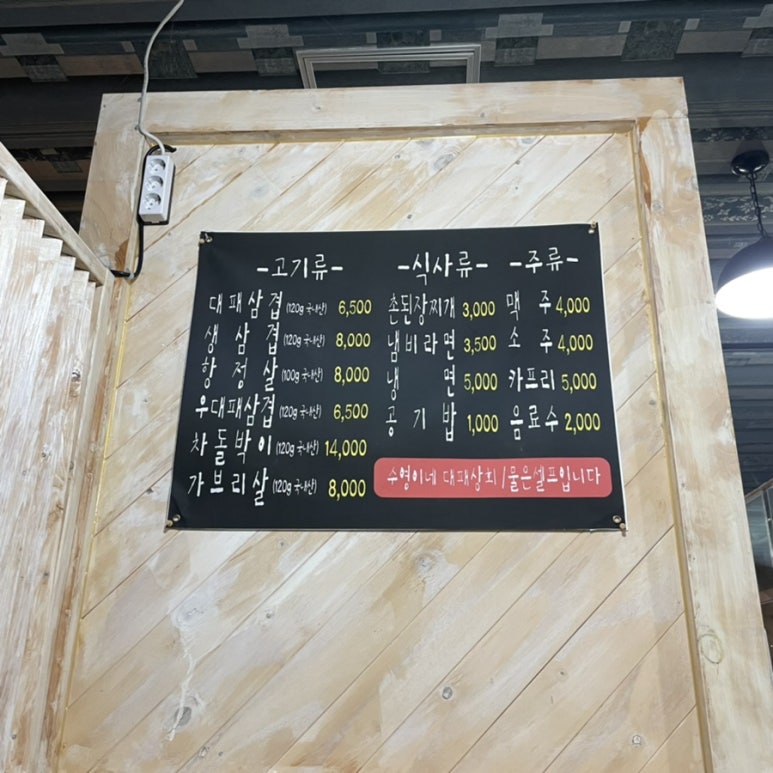 -고기류-
대패삼겹 (120g 국내산) 6,500
생삼겹 (120g 국내산) 8,000
항정살 (100g 국내산) 8,000
우대패삼겹 (120g 국내산) 6,500
차돌박이 (120g 국내산) 14,000
가브리살 (120g 국내산) 8,000
-식사류-
촌된장찌개 3,000
냄비라면 3,500
냉면 5,000
공기밥 1,000
-주류-
맥주 4,000
소주 4,000
카프리 5,000
음료수 2,000
수영이네 대패상회 / 물은셀프입니다